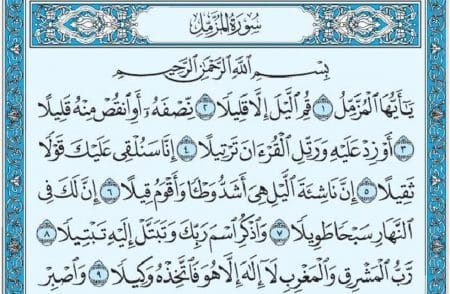 سُورَةُ المُزَّمِّلِ
بِسْمِ ٱللَّهِ ٱلرَّحْمَٰنِ ٱلرَّحِيمِ
يَٰٓأَيُّهَا ٱلْمُزَّمِّلُ ١ قُمِ ٱلَّيْلَ إِلَّا قَلِيلًا ٢ نِّصْفَهُۥٓ أَوِ ٱنقُصْ مِنْهُ قَلِيلًا
٣ أَوْ زِدْ عَلَيْهِ وَرَتِّلِ ٱلْقُرْءَانَ تَرْتِيلًا ٤ إِنَّا سَنُلْقِى عَلَيْكَ قَوْلًا
ثَقِيلًا ٥ إِنَّ نَاشِئَةَ ٱلَّيْلِ هِىَ أَشَدُّ وَطْـًٔا وَأَقْوَمُ قِيلًا ٦ إِنَّ لَكَ فِى
ٱلنَّهَارِ سَبْحًا طَوِيلًا ٧ وَٱذْكُرِ ٱسْمَ رَبِّكَ وَتَبَتَّلْ إِلَيْهِ تَبْتِيلًا ٨
رَّبُّ ٱلْمَشْرِقِ وَٱلْمَغْرِبِ لَآ إِلَٰهَ إِلَّا هُوَ فَٱتَّخِذْهُ وَكِيلًا ٩ وَٱصْبِرْ